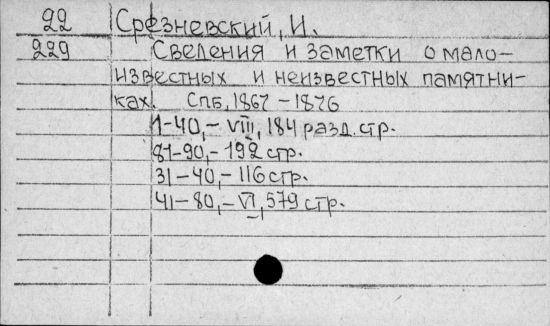 22 Срезневский, И.
229 Сведения и заметки о мало-
известных и неизвестных памятни-
ках. Спб, 1867-1876
1-40,- VIII, 184 разд. стр.
81-90,- 192 стр.
31-40,- 116 стр.
41-80,- VI, 579 стр.